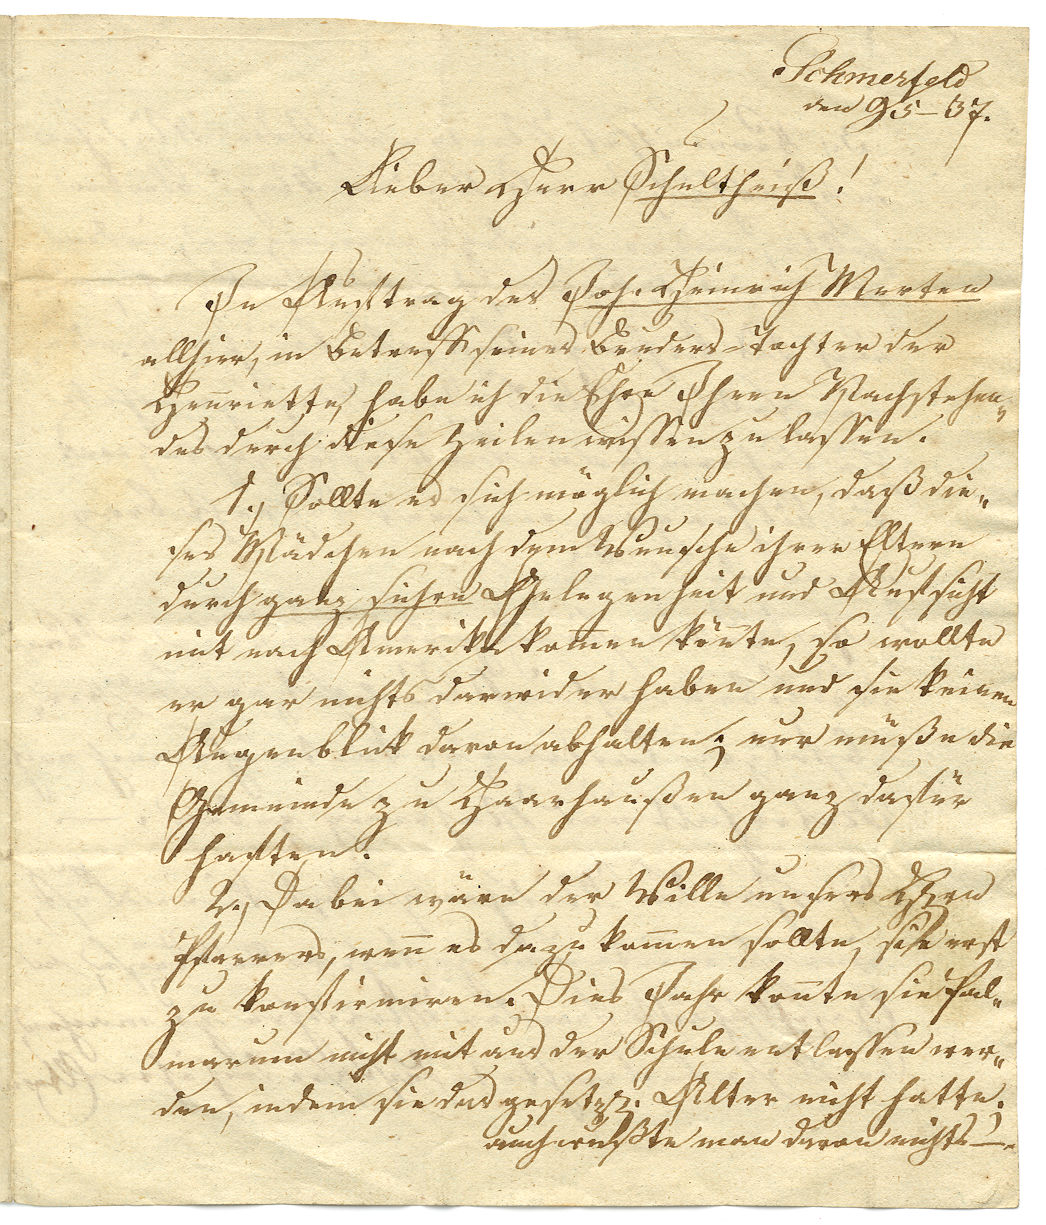 Schmerfeld
den 9/5–37.
Lieber Herr Schultheiß!
Im Auftrag des Joh. Heinrich Merten
allhier, in Betreff seines Bruders-Tochter der
Henriette, habe ich die Ehre Ihnen Nachstehen„
des durch diese Zeilen wissen zu lassen.
1., Sollte es sich möglich machen, daß die„
ses Mädchen nach dem Wunsche ihrer Eltern
durch ganz sichre Gelegenheit und Aufsicht
mit nach Amerika kom̄en kön̄te, so wollte
er gar nichts darwider haben und sie keinen
Augenblick davon abhalten; nur müße die
Gemeinde zu Haarhaußen ganz dafür
haften.
2., Dabei wäre der Wille unsers Hrn
Pfarrers, wen̄ es dazu kom̄en sollte, sie erst
zu konfirmiren. Dies Jahr kon̄te sie Pal„
marum nicht mit aus der Schule entlassen wer„
den, indem sie das gesetzl. Alter nicht hatte;
auch wußte man davon nichts –.